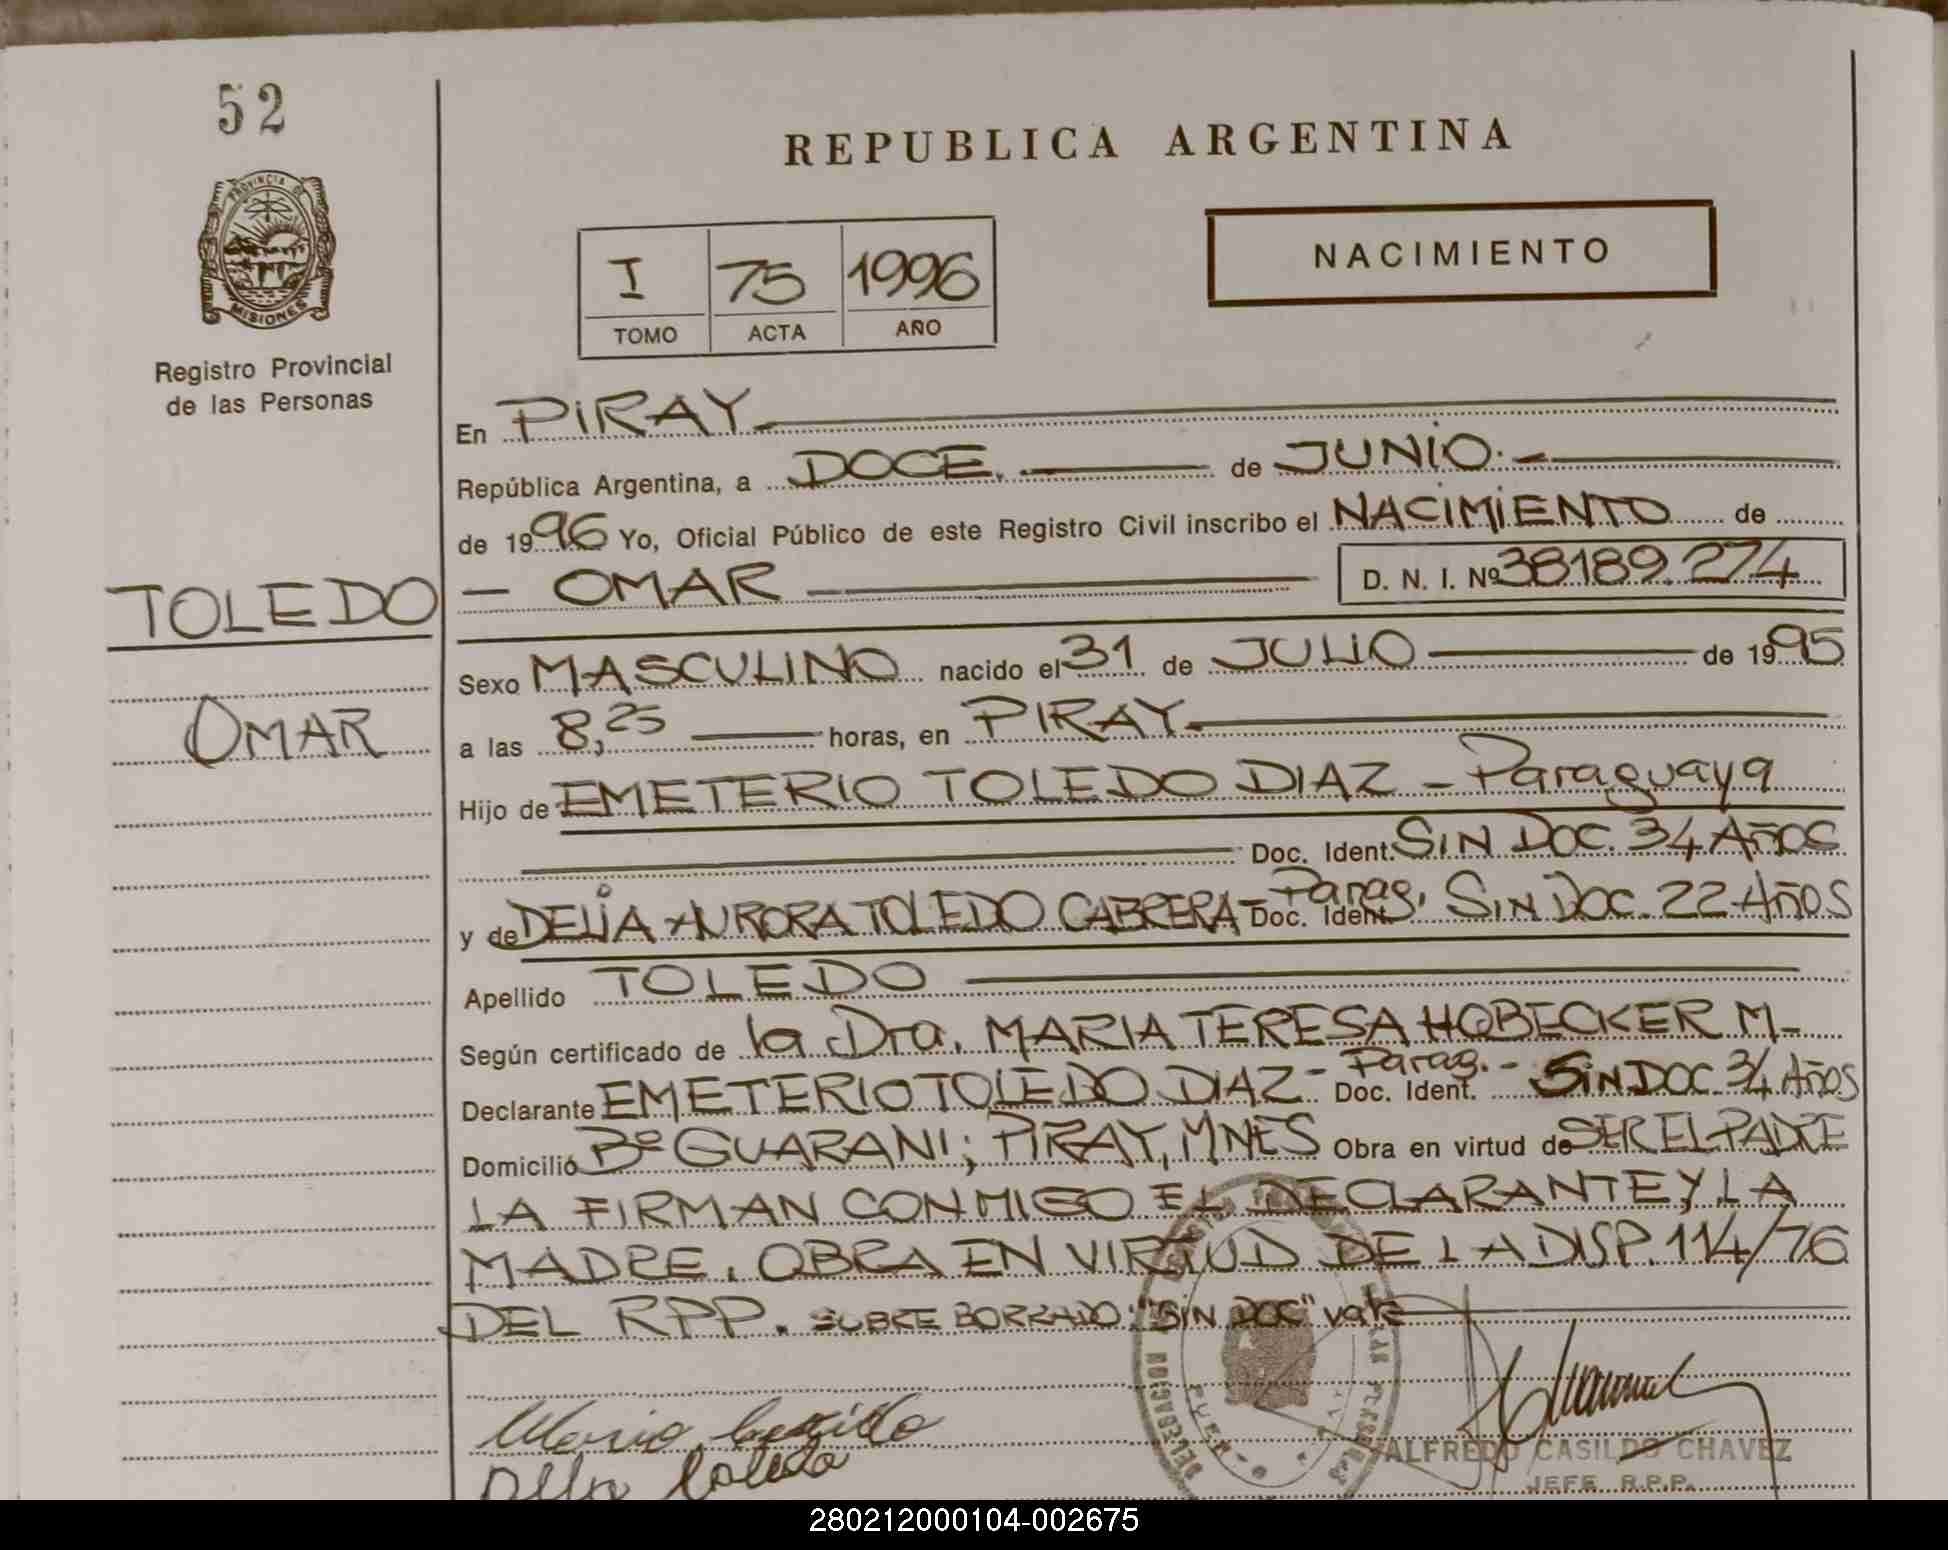 52
PROVINCIA DE
MISIONES
Registro Provincial
de las Personas
TOLEDO
OMAR
REPUBLICA ARGENTINA
I 75 1996
TOMO ACTA AÑO
NACIMIENTO
En PIRAY
República Argentina, a DOCE. de JUNIO.
de 1996 Yo, Oficial Público de este Registro Civil inscribo el NACIMIENTO de
OMAR D. N. I. Nº 38189.274
Sexo MASCULINO nacido el 31 de JULIO de 1995
a las 8,25 horas, en PIRAY
Hijo de EMETERIO TOLEDO DIAZ - Paraguaya
Doc. Ident. SIN DOC. 34 AÑOS
y de DELIA AURORA TOLEDO CABRERA - Parag. Doc. Ident. SIN DOC. 22 AÑOS
Apellido TOLEDO
Según certificado de la Dra. MARIA TERESA HOBECKER M-
Declarante EMETERIO TOLEDO DIAZ - Parag. - Doc. Ident. SIN DOC. 34 AÑOS
Domicilio Bº GUARANI; PIRAY, MNES Obra en virtud de SER EL PADRE
LA FIRMAN CONMIGO EL DECLARANTE Y LA
MADRE. OBRA EN VIRTUD DE LA DISP. 114/76
DEL RPP. SOBRE BORRADO: "SIN DOC" vale
ALFREDO CASILDO CHAVEZ
JEFE R.P.P.
280212000104-002675